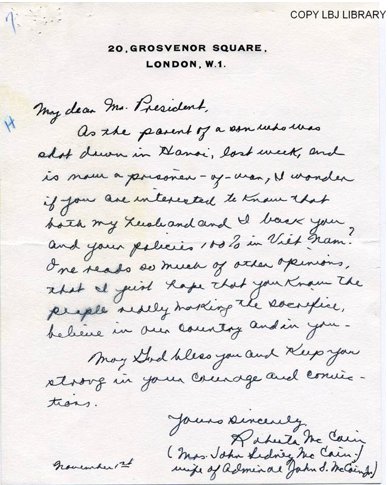 COPY LBJ LIBRARY
20, GROSVENOR SQUARE,
LONDON, W.1.
My dear Mr. President,
As the parent of a son who was
shot down in Hanoi, last week, and
is now a prisoner-of-war, I wonder
if you are interested to know that
both my husband and I back you
and your policies 100% in Viet Nam?
One reads so much of other opinions,
that I just hope that you know the
people really making the sacrifice,
believe in our country and in you-
May God bless you and keep you
strong in your courage and convic-
tions.
Yours sincerely
Roberta McCain
(Mrs. John Sidney McCain-)
November 1st
wife of Admiral John S. McCain Jr)
H